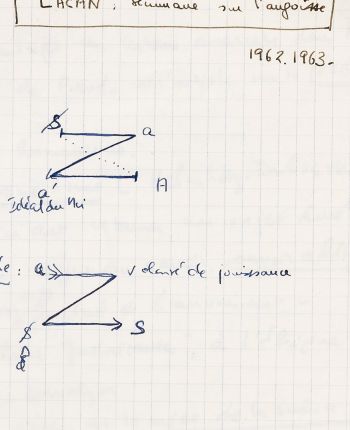 LACAN : séminaire sur l'angoisse
1962.1963-
$ a
a' A
Idéal du Moi
: a volonté de jouissance
$ S